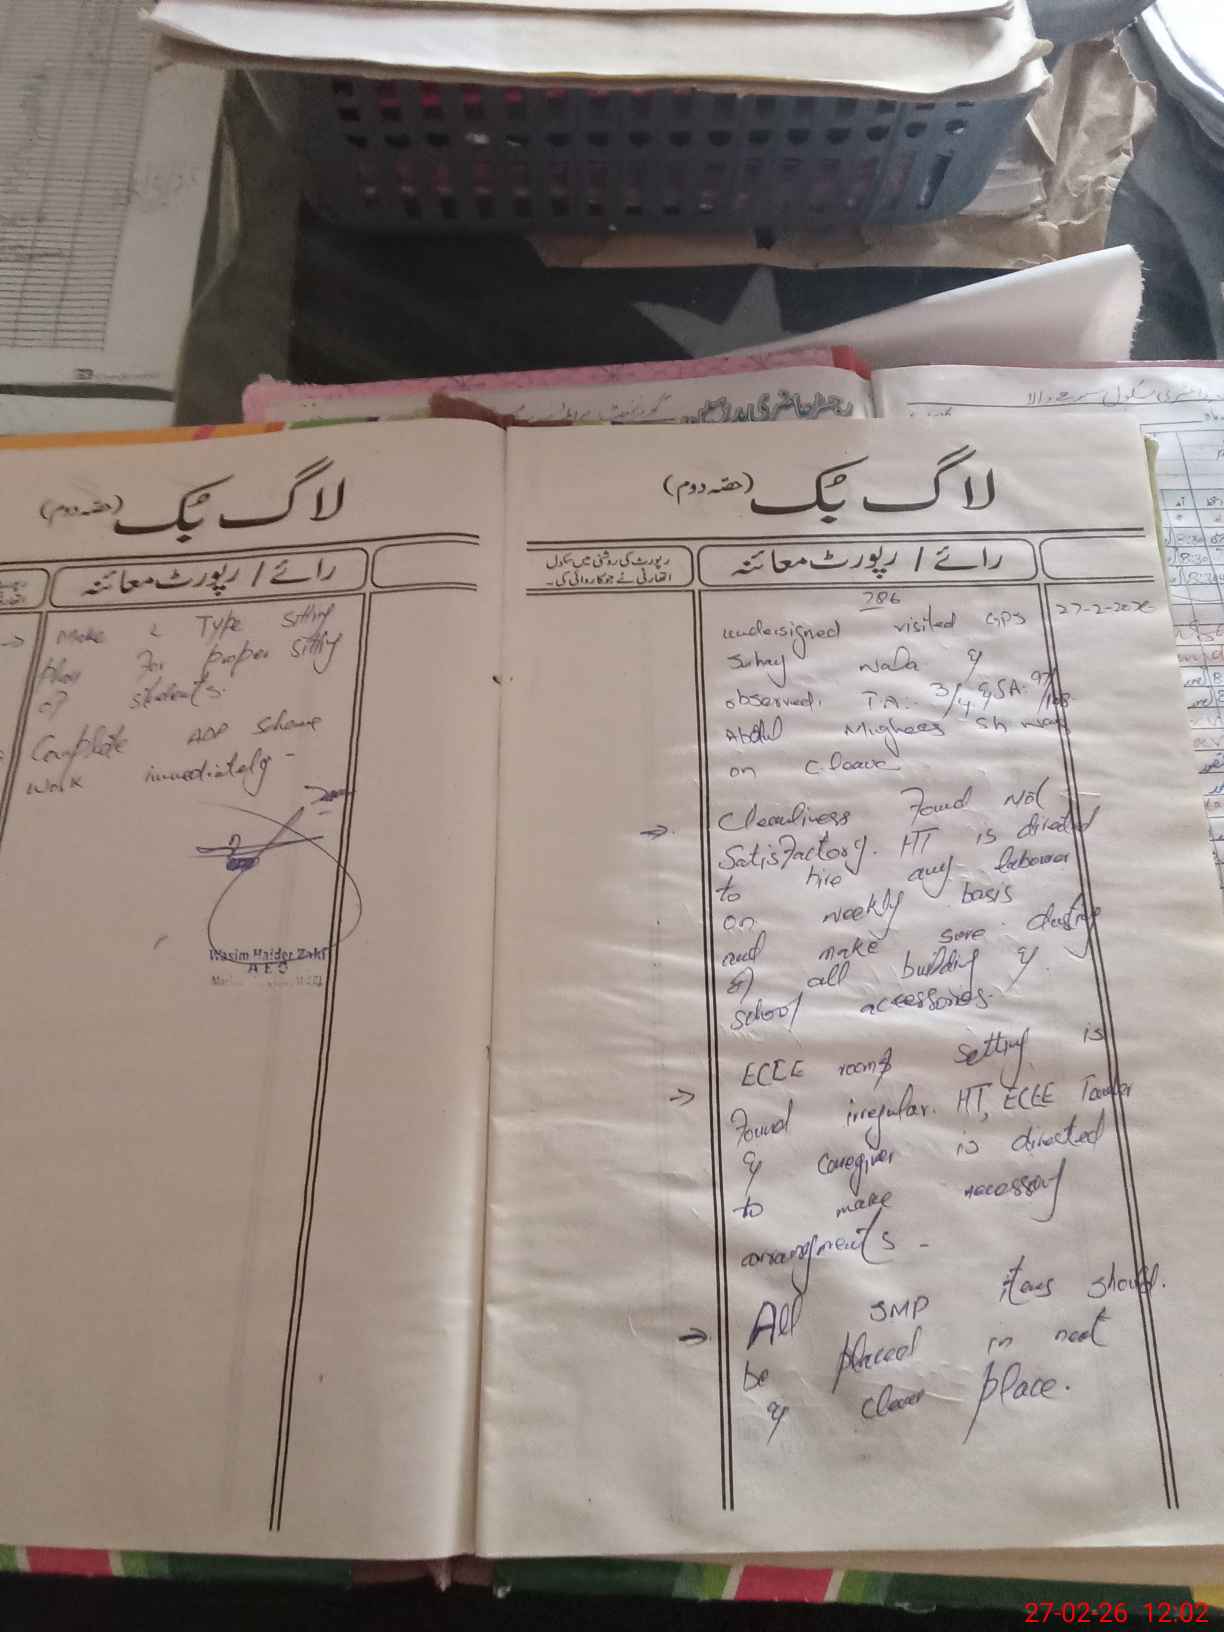 رجسٹر حاضری مدرسین
لاگ بُک (حصّہ دوم)
رائے / رپورٹ معائنہ
Make 2 Type sitting
plan for proper sitting
of students.
Complete ADP scheme
work immediately -
Wasim Haider Zaki
A E O
لاگ بُک (حصّہ دوم)
رپورٹ کی روشنی میں سکول
اتھارٹی نے جو کاروائی کی۔
رائے / رپورٹ معائنہ
786
27-2-2026
undersigned visited GPS
wala &
observed. TA:- 3/4 & SA: 97/108
Abdul Mughees Sh was
on C.leave
→ Cleanliness Found Not
Satisfactory. HT is directed
to hire any labourer
on weekly basis
and make sure dusting
of all building &
school accessories.
→ ECCE room setting is
Found irregular. HT, ECCE Teacher
& Caregiver is directed
to make necessary
arrangments -
→ All SMP items should.
be placed in neat
& clean place.
27-02-26 12:02